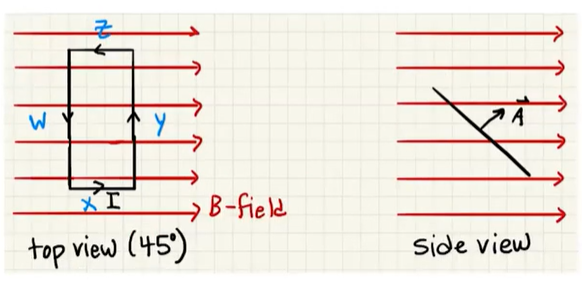 Z
W
y
x I
B-field
A
top view (45°)
side view